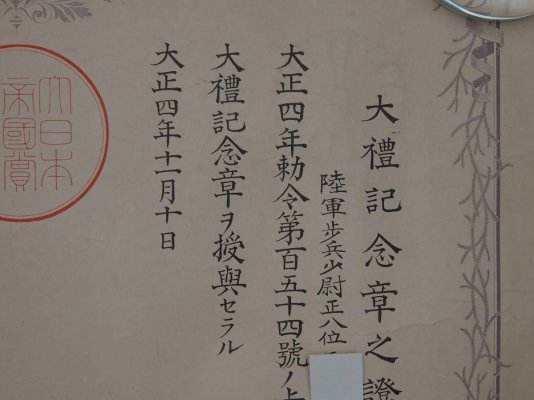 大禮記念章之證
陸軍歩兵少尉正八位
大正四年勅令第百五十四號ノ
大禮記念章ヲ授與セラル
大正四年十一月十日
大日本
帝國賞